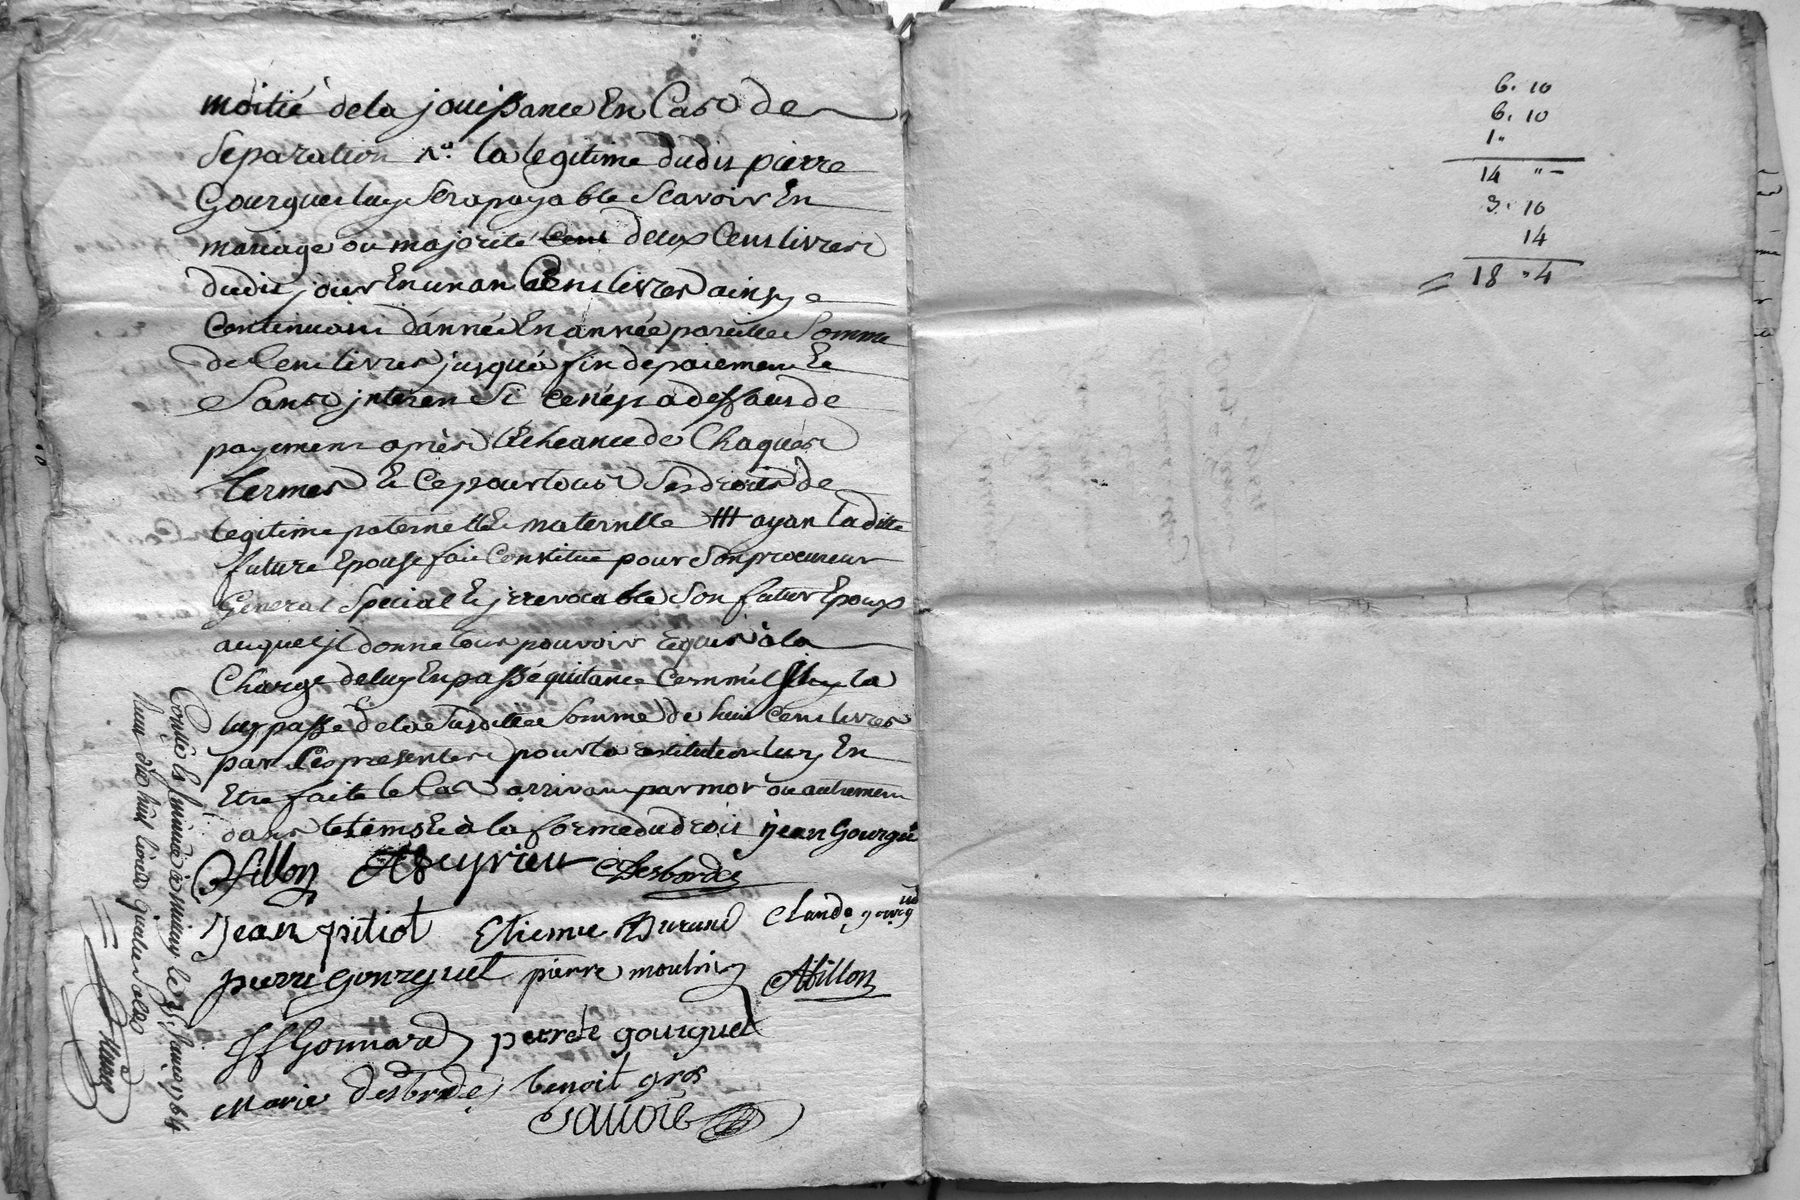 moitié dela jouissance En Cas de
Separation N.a la legitime dudit pierre
Gourguet luy Sera payable Scavoir En
mariage ou majorité Cent deux Cent livres
dudit jour En un an Cent livres ainsy
Continuant d'année En année pareille Somme
de Cent livres jusqu'à fin de paiement Et
Sans interet Si Ce n'est a deffaut de
payement après l'Echeance de Chaques
termes Et Ce pour tous Ses droits de
legitime paternelle Et maternelle ayant ladite
future Epouse fait Constitué pour Son procureur
General Special Et jrrevocable Son futur Epoux
auquel Il donne tout pouvoir requis à la
Charge de luy En passé quitance Comme Il la
luy passé de la Susditte Somme de huit Cent livres
par Ces presentes pour la restitution luy En
Etre faite le Cas arrivant par mort ou autrement
dans le tems Et à la forme du droit jean Gourgue
Fillon ABeyrieu CDesbordes
Jean pitiot Etienne Durand Claude gourguet
pierre gourguet pierre moulin AFillon
Gonnard perrete gourguet
Marie desbordes benoit gros
Savoie
Controlé et Insinué à le 25 Janvier 1764
huit livres quatre Soldes
6. 10
6. 10
1 "
14 " –
3. 10
14
= 18 " 4